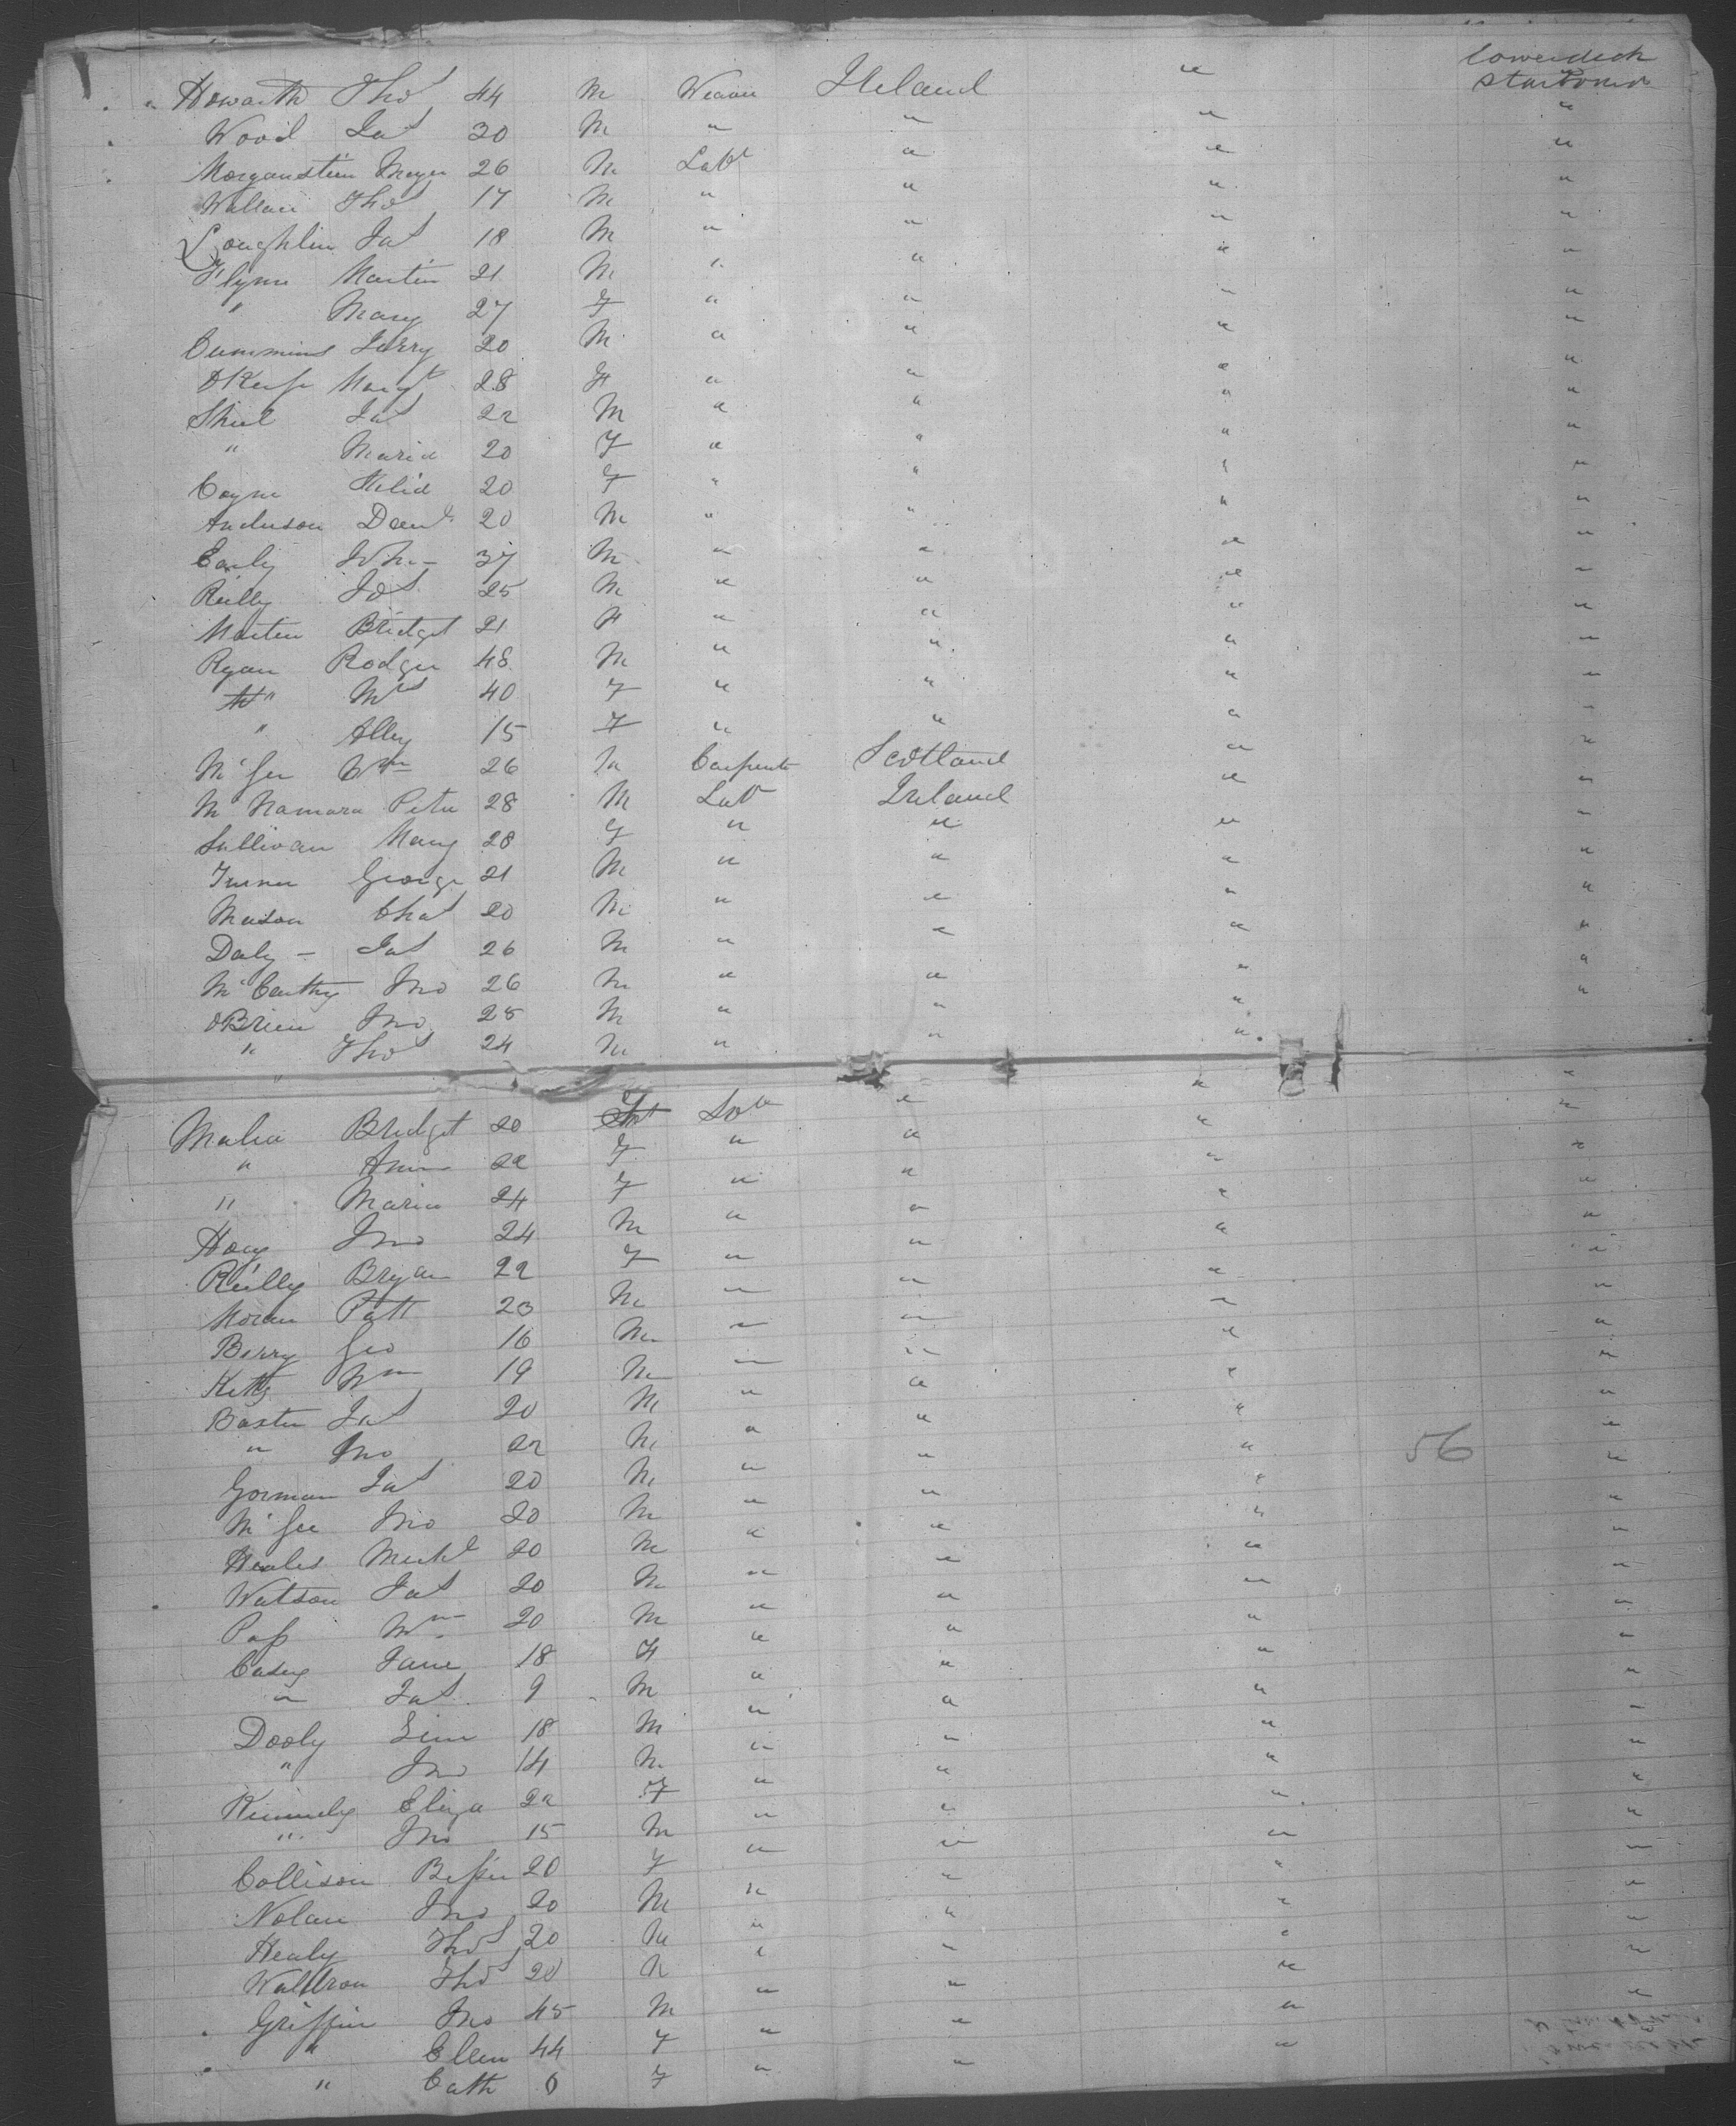 lowerdeck
Howarth Thos 44 M Weaver Ireland " starboard
Wood Jas 30 M " " " "
Morganstein Meyer 26 M Labr " " "
Wallace Thos 17 M " " " "
Loughlin Jas 18 M " " " "
Flynn Martin 21 M " " " "
" Mary 27 F " " " "
Cummins Jerry 20 M " " " "
OKeefe Margt 28 F " " " "
Shiel Jas 22 M " " " "
" Maria 20 F " " " "
Coyne 20 F " " " "
Anderson Danl 20 M " " " "
Early 37 M " " " "
Reilly Jos 25 M " " " "
Martin Bridget 21 F " " " "
Ryan Rodger 48 M " " " "
" Mrs 40 F " " " "
" Alley 15 F " " " "
McGee Wm 26 M Carpenter Scotland " "
McNamara Peter 28 M Labr Ireland " "
Sullivan Mary 28 F " " " "
Turner George 21 M " " " "
Mason Chas 20 M " " " "
Daly - Jas 26 M " " " "
McCarthy Jno 26 M " " " "
OBrien Jno 25 M " " " "
" Thos 24 M " " "
Bridget 20 F Labr " " "
" Ann 22 F " " " "
" Maria 24 F " " " "
Hoey Jno 24 M " " " "
Reilly Bryan 22 F " " " "
Moran Patt 23 M " " " "
Berry Geo 16 M " " " "
Wm 19 M " " " "
Baxter Jas 20 M " " " "
" Jno 22 M " " " 56 "
Gorman Jas 20 M " " " "
McGee Jno 20 M " " " "
Michl 20 M " " " "
Watson Jas 20 M " " " "
Wm 20 M " " " "
Casey Jane 18 F " " " "
" Jas 9 M " " " "
Dooly 18 M " " " "
" Jno 14 M " " " "
Kennedy Eliza 22 F " " " "
" Jno 15 M " " " "
Collison Bessie 20 F " " " "
Nolan Jno 20 M " " " "
Healy Thos 20 M " " " "
Waldron Thos 20 M " " " "
Griffin Jno 45 M " " " "
" Ellen 44 F " " "
" Cath 6 F " " "